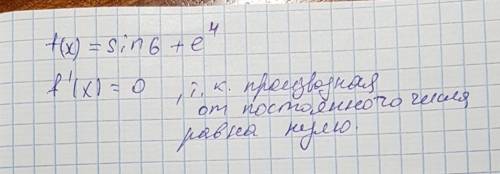 f(x) = sin6 + e⁴
f'(x) = 0 , т.к. производная
от постоянного числа
равна нулю.